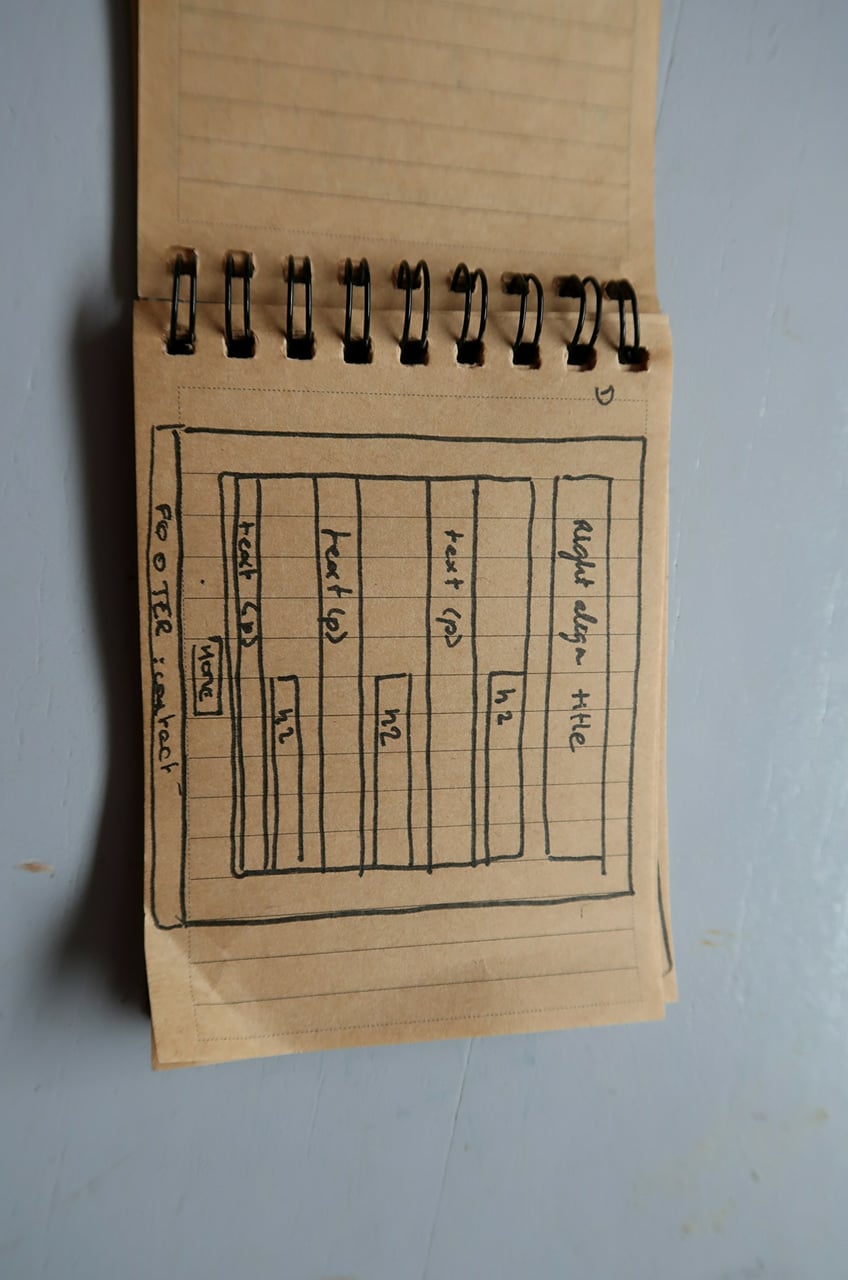 D
Right align title
h2
text (p)
h2
text (p)
h2
text (p)
Home
FOOTER : contact